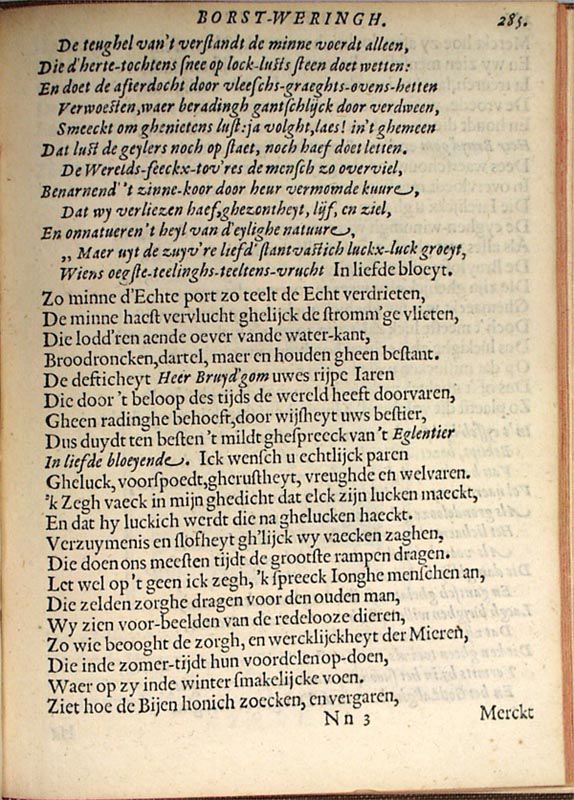 BORST-WERINGH. 285.
De teughel van't verstandt de minne voerdt alleen,
Die d'herte-tochtens snee op lock-lusts steen doet wetten:
En doet de afterdocht door vleeschs-graeghts-ovens-hetten
Verwoesten, waer beradingh gantschlijck door verdween,
Smeeckt om ghenietens lust: ja volght, laes! in't ghemeen
Dat lust de geylers noch op staet, noch haef doet letten.
De Werelds-feeckx-tov'res de mensch zo overviel,
Benarnend' 't zinne-koor door heur vermomde kuure,
Dat wy verliezen haef, ghezontheyt, lijf, en ziel,
En onnatueren't heyl van d'eylighe natuure,
„ Maer uyt de zuyv're liefd' stantvastich luckx-luck groeyt,
Wiens oegste-teelinghs-teeltens-vrucht In liefde bloeyt.
Zo minne d'Echte port zo teelt de Echt verdrieten,
De minne haest vervlucht ghelijck de stromm'ge vlieten,
Die lodd'ren aende oever vande water-kant,
Broodroncken, dartel, maer en houden gheen bestant.
De defticheyt Heer Bruyd'gom uwes rijpe Iaren
Die door 't beloop des tijds de wereld heeft doorvaren,
Gheen radinghe behoeft, door wijsheyt uws bestier,
Dus duydt ten besten 't mildt ghespreeck van't Eglentier
In liefde bloeyende. Ick wensch u echtlijck paren
Gheluck, voorspoedt, gherustheyt, vreughde en welvaren.
'k Zegh vaeck in mijn ghedicht dat elck zijn lucken maeckt,
En dat hy luckich werdt die na ghelucken haeckt.
Verzuymenis en slofheyt gh'lijck wy vaecken zaghen,
Die doen ons meesten tijdt de grootste rampen dragen.
Let wel op 't geen ick zegh, 'k spreeck Ionghe menschen an,
Die zelden zorghe dragen voor den ouden man,
Wy zien voor-beelden van de redelooze dieren,
Zo wie beooght de zorgh, en wercklijckheyt der Mieren,
Die inde zomer-tijdt hun voordelen op-doen,
Waer op zy inde winter smakelijcke voen.
Ziet hoe de Bijen honich zoecken, en vergaren,
Nn 3 Merckt